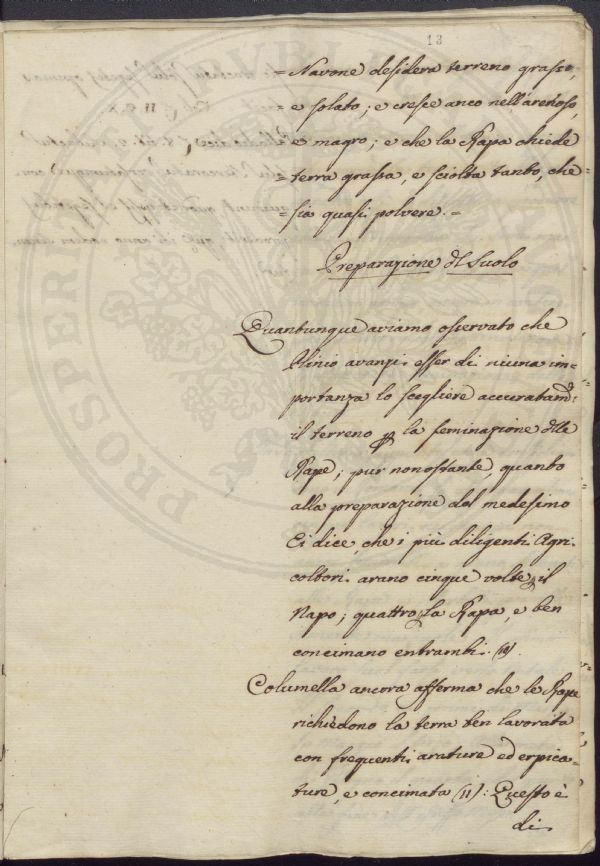 13
= Navone desidera terreno grasso,
= e solato; e cresce anco nell'arenoso,
= e magro; e che la Rapa chiede
= terra grassa, e sciolta tanto, che =
= sia quasi polvere. =
Preparazione dl Suolo
Quantunque aviamo osservato che
Plinio avanzi esser di niuna im=
portanza lo scegliere accuratamd:
il terreno p la seminazione dlle
Rape; pur nonostante, quanto
alla preparazione del medesimo
Ci dice, che i più diligenti Agri:
coltori arano cinque volte p il
Napo; quattro p la Rapa, e ben
concimano entrambi. (10).
Columella ancora afferma che le Rape
richiedono la terra ben lavorata
con frequenti arature ed erpica=
ture, e concimata (11): Questo è
di
PROSPERITATI PVBLIC